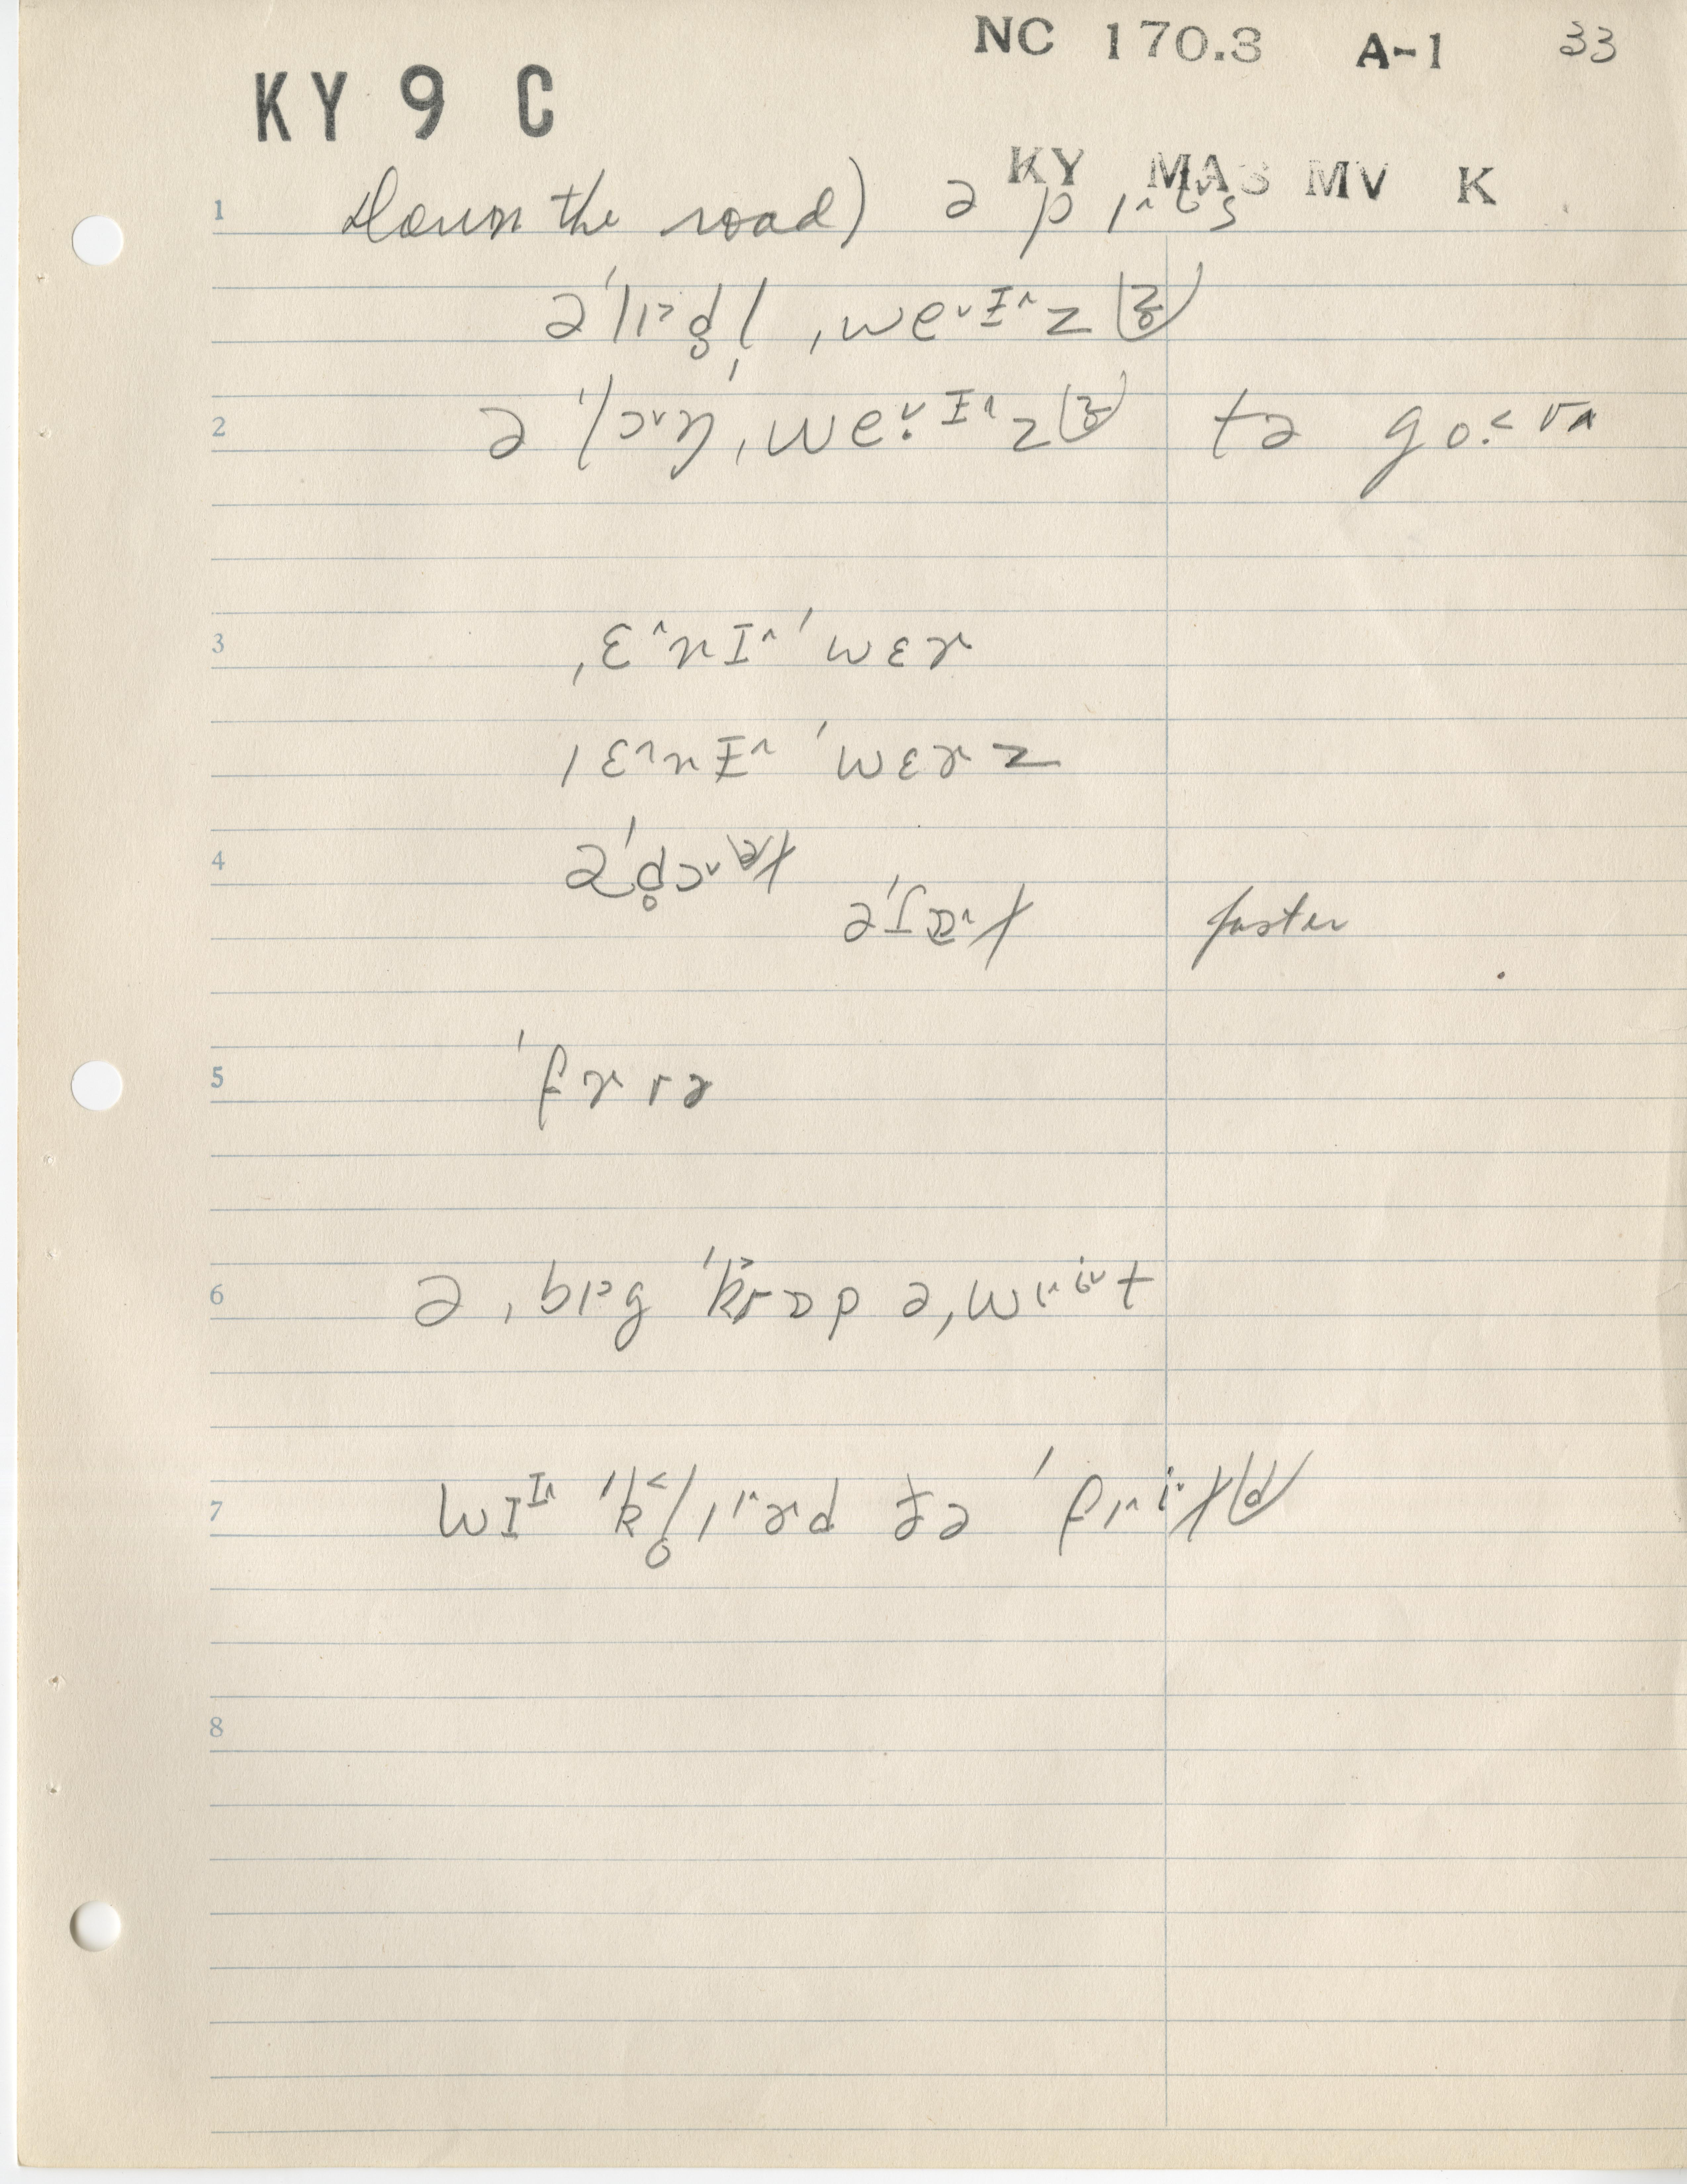 NC 170.3 A-1 33
KY 9 C
KY MAS MV K
1 Down the road) ə pɪ^i̯ˇs
əˈlɪ˃d̥l̩ ˌweˇᵻ^z(z̥)
2 əˈlɔˇŋˌweˑˇᵻ^z(z̥) tə goˑ˂ ʊ^
3 ˌɛ^nɪ^ˈwɛɚ
ˌɛ^nᵻ^ˈwɛɚz
4 əˈd̥ɔˇ(ə)ɫ
əˈfɒ^ɫ faster
5 ˈfɝrɚ
6 əˌbɪ˃g ˈk˃rɒp əˌwɪ^iˇt
7 wɪᶦ^ ˈk˂l̥ɪ^ɚd t̬ə ˈfɪ^iˇɫ(d)
8